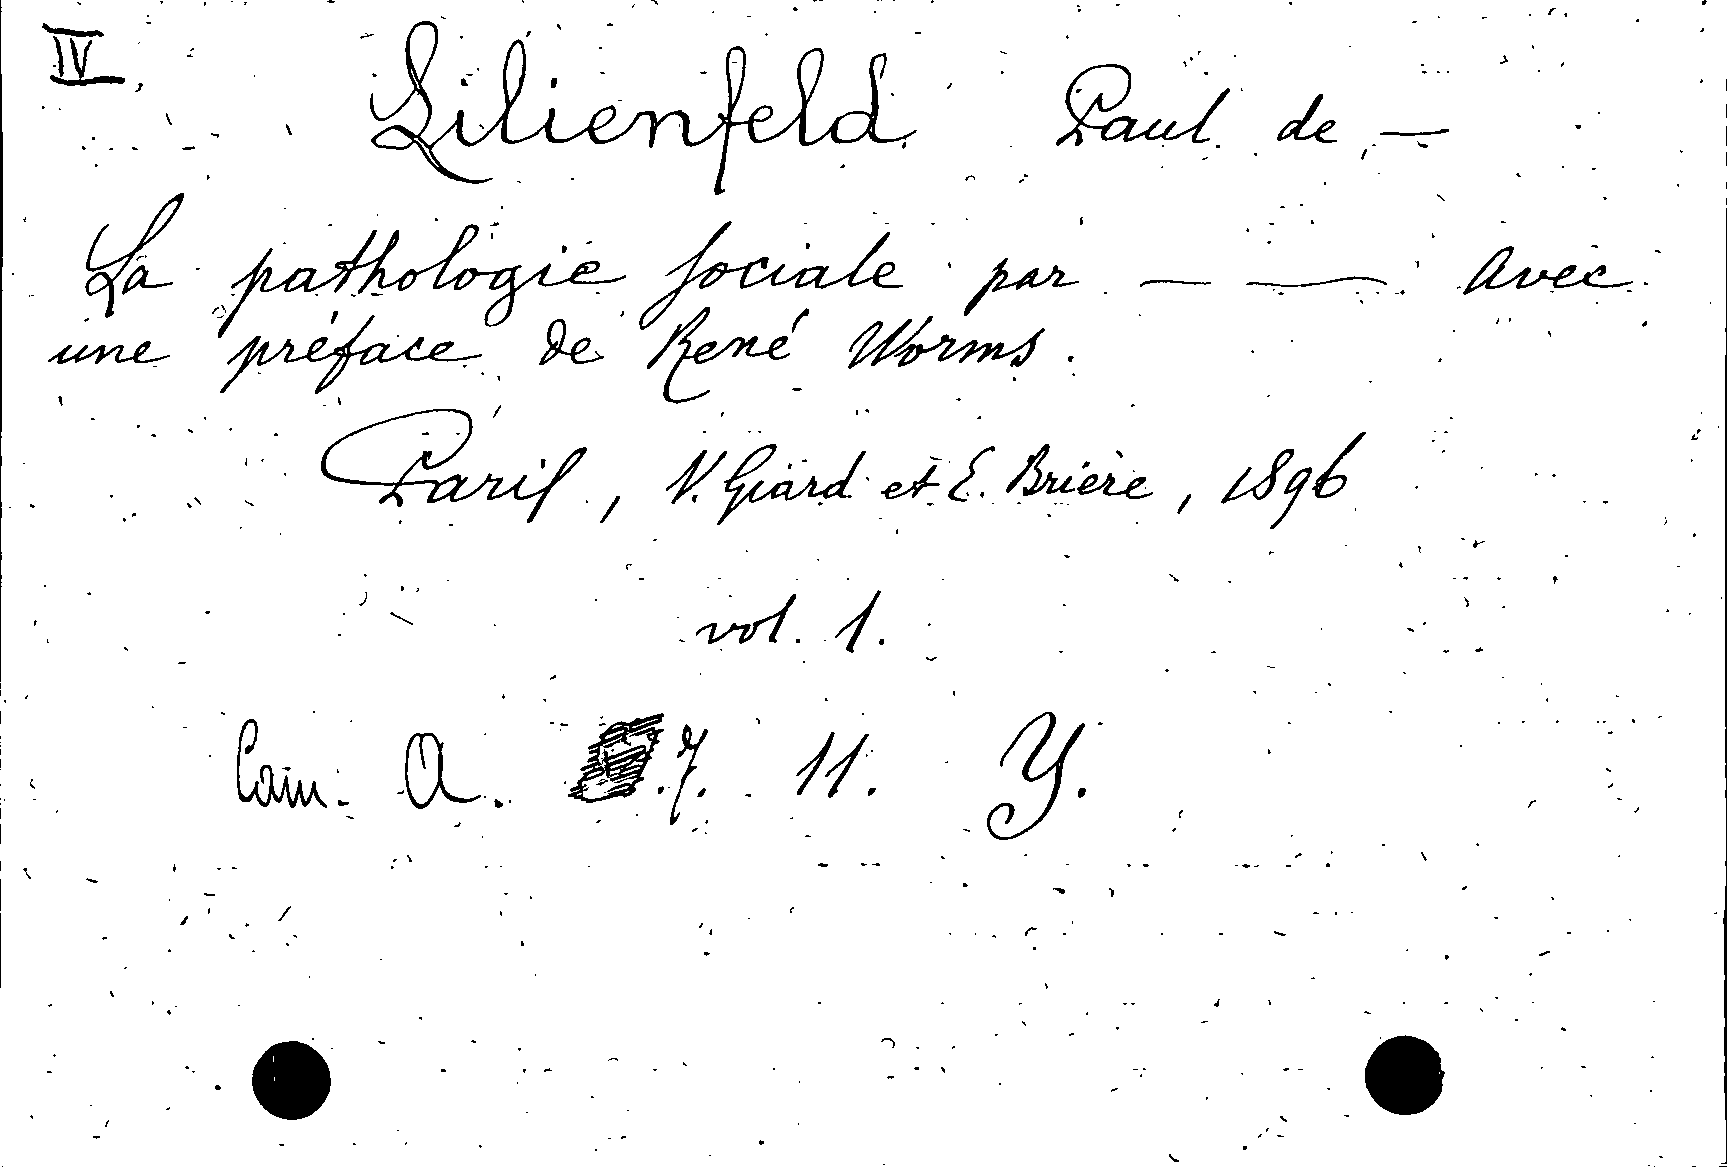 IV
Lilienfeld Paul de —
La pathologie sociale par — — avec
une préface de René Worms.
Paris, V. Giard et E. Brière, 1896
vol. 1.
Cam. A. 7. 11. Y.